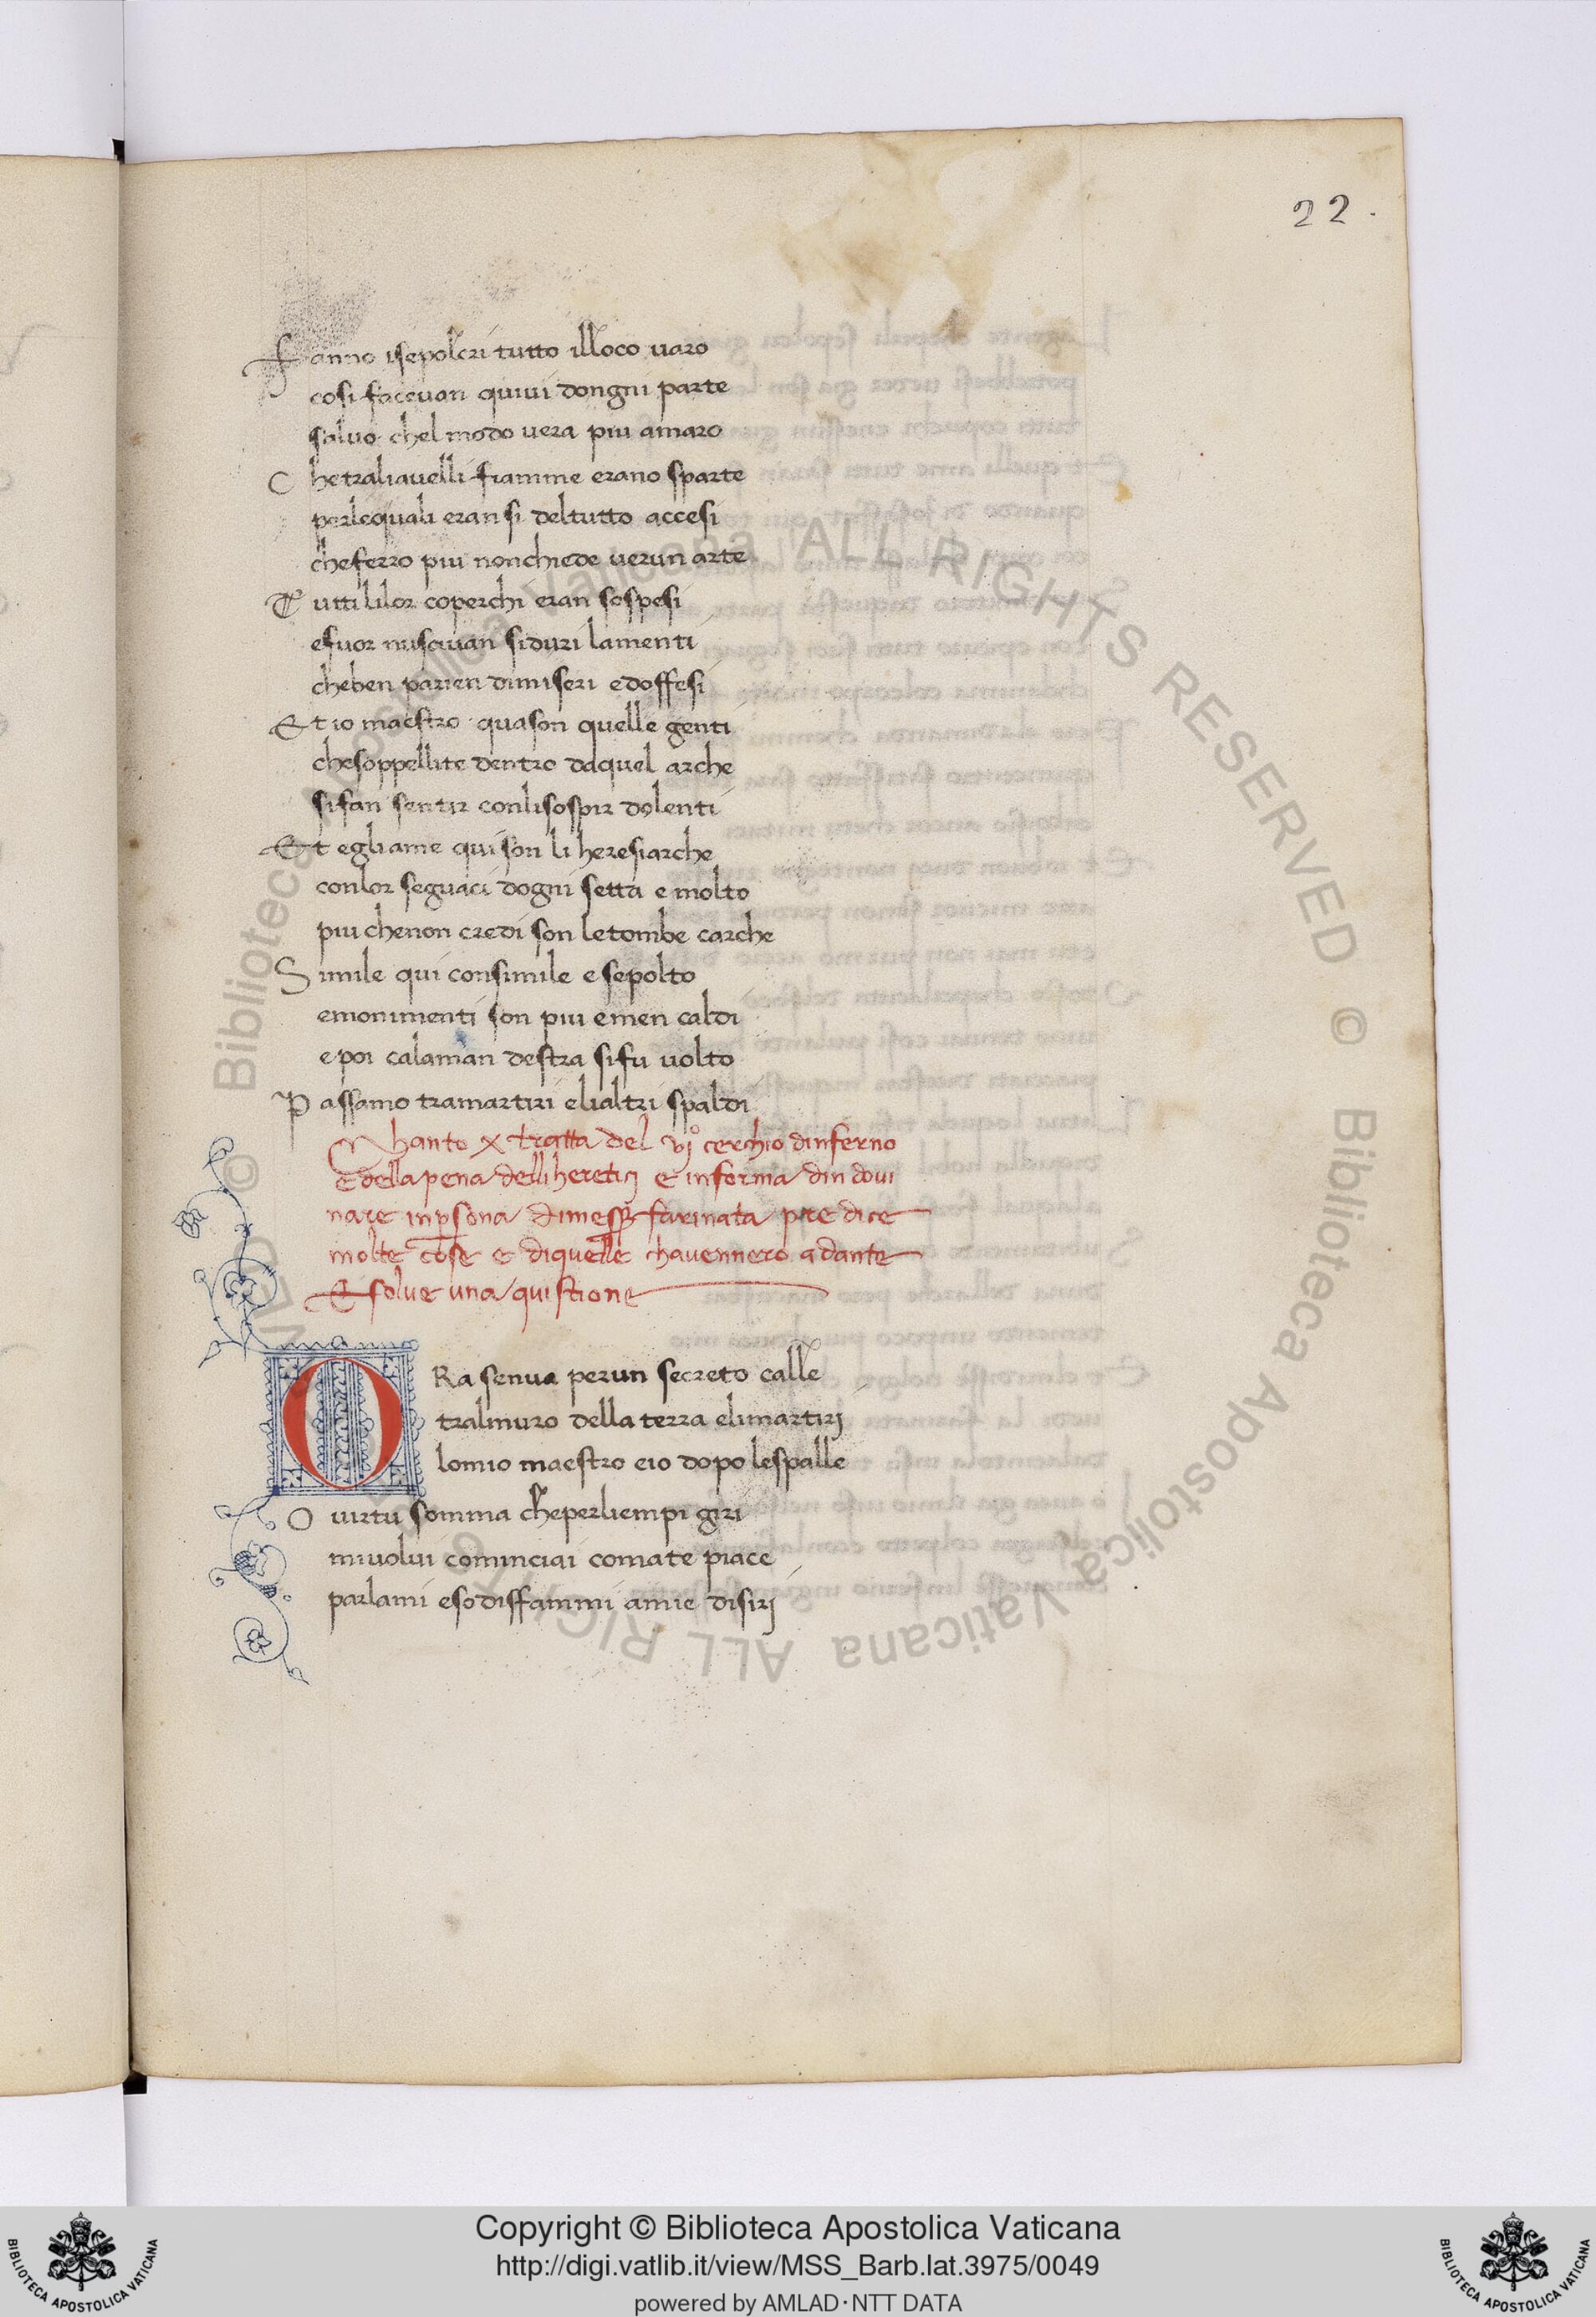 22.
Fanno isepolcri tutto illoco varo
cosi facevan quivi dongni parte
salvo chel modo vera piu amaro
Chetraliavelli fiamme erano sparte
perlequali eran si deltutto accesi
cheferro piu nonchiede verun arte
Tutti lilor coperchi eran sospesi
efuor nuscivan siduri lamenti
cheben parien dimiseri edoffesi
Et io maestro quason quelle genti
chesoppellite dentro daquel arche
sifan sentir conlisospir dolenti
Et egliame qui son li heresiarche
conlor seguaci dogni setta e molto
piu chenon credi son letombe carche
Simile qui consimile e sepolto
emonimenti son piu emen caldi
e poi calaman destra sifu volto
Passamo tramartiri elialtri spaldi
Chanto x tratta del vjº cerchio dinferno
e della pena delli heretici e in forma din dovi
nare inpsona dimesser farinata pre dice
molte cose e diquelle chavennero a dante
Et solve una quistione
ORa senva perun secreto calle
tralmuro della terra elimartirj
lomio maestro eio dopo lespalle
O virtu somma cheperliempi giri
mivolvi cominciai comate piace
parlami esodisfammi amie disirj
© Biblioteca Apostolica Vaticana ALL RIGHTS RESERVED © Biblioteca Apostolica Vaticana ALL RIGHTS RESERVED
Copyright © Biblioteca Apostolica Vaticana
http://digi.vatlib.it/view/MSS_Barb.lat.3975/0049
powered by AMLAD·NTT DATA
BIBLIOTECA APOSTOLICA VATICANA
BIBLIOTECA APOSTOLICA VATICANA